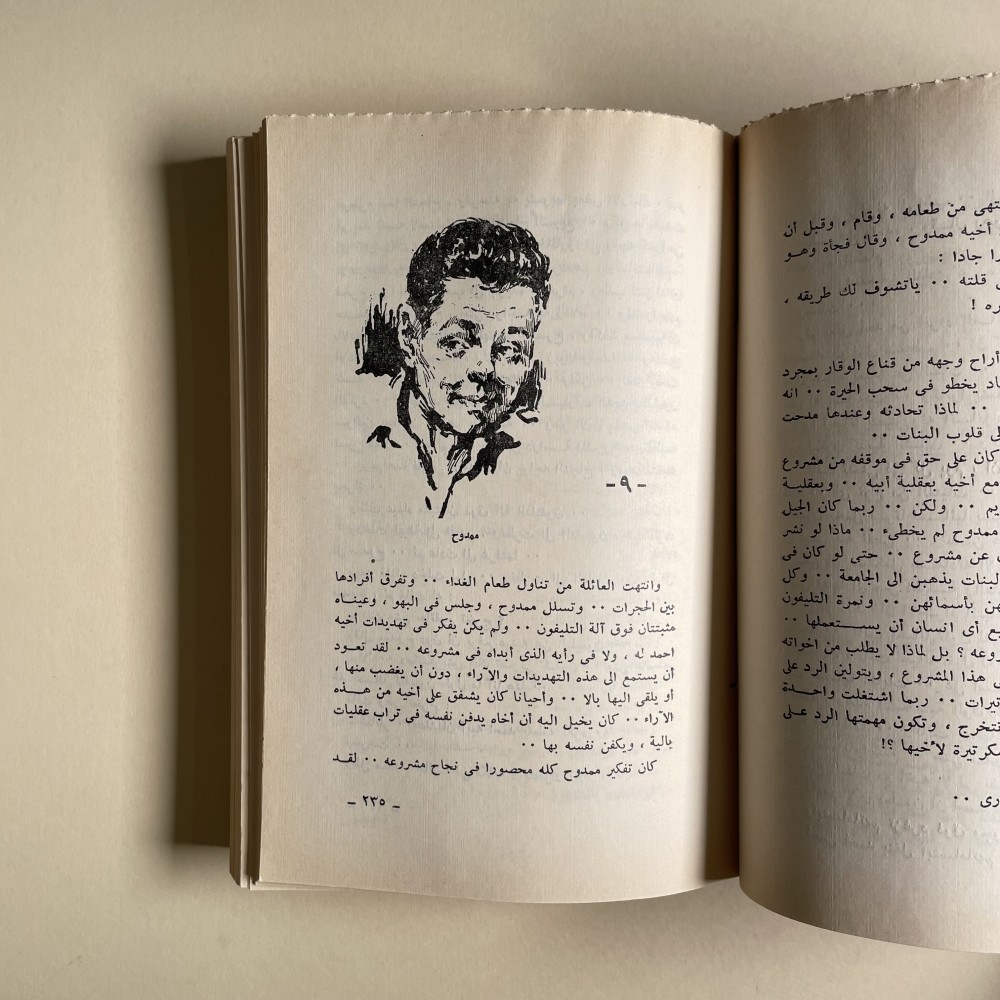 نتهى من طعامه ، وقام ، وقبل أن
أخيه ممدوح ، وقال فجأة وهو
جادا :
قلته .. ياتشوف لك طريقه ،
!
أراح وجهه من قناع الوقار بمجرد
يخطو فى سحب الحيرة .. انه
.. لماذا تحادثه وعندها مدحت
قلوب البنات ..
كان على حق فى موقفه من مشروع
مع أخيه بعقلية أبيه .. وبعقلية
.. ولكن .. ربما كان الجيل
ممدوح لم يخطىء .. ماذا لو نشر
عن مشروع .. حتى لو كان فى
البنات يذهبن الى الجامعة .. وكل
بأسمائهن .. ونمرة التليفون
أى انسان أن يستعملها ..
؟ بل لماذا لا يطلب من اخواته
هذا المشروع ، ويتولين الرد على
.. ربما اشتغلت واحدة
تتخرج ، وتكون مهمتها الرد على
سكرتيرة لأخيها ؟!
..
- ٩ -
ممدوح
وانتهت العائلة من تناول طعام الغداء .. وتفرق أفرادها
بين الحجرات .. وتسلل ممدوح ، وجلس فى البهو ، وعيناه
مثبتتان فوق آلة التليفون .. ولم يكن يفكر فى تهديدات أخيه
احمد له ، ولا فى رأيه الذى أبداه فى مشروعه .. لقد تعود
أن يستمع الى هذه التهديدات والآراء ، دون أن يغضب منها ،
أو يلقى اليها بالا .. وأحيانا كان يشفق على أخيه من هذه
الآراء .. كان يخيل اليه أن أخاه يدفن نفسه فى تراب عقليات
بالية ، ويكفن نفسه بها ..
كان تفكير ممدوح كله محصورا فى نجاح مشروعه .. لقد
- ٢٣٥ -